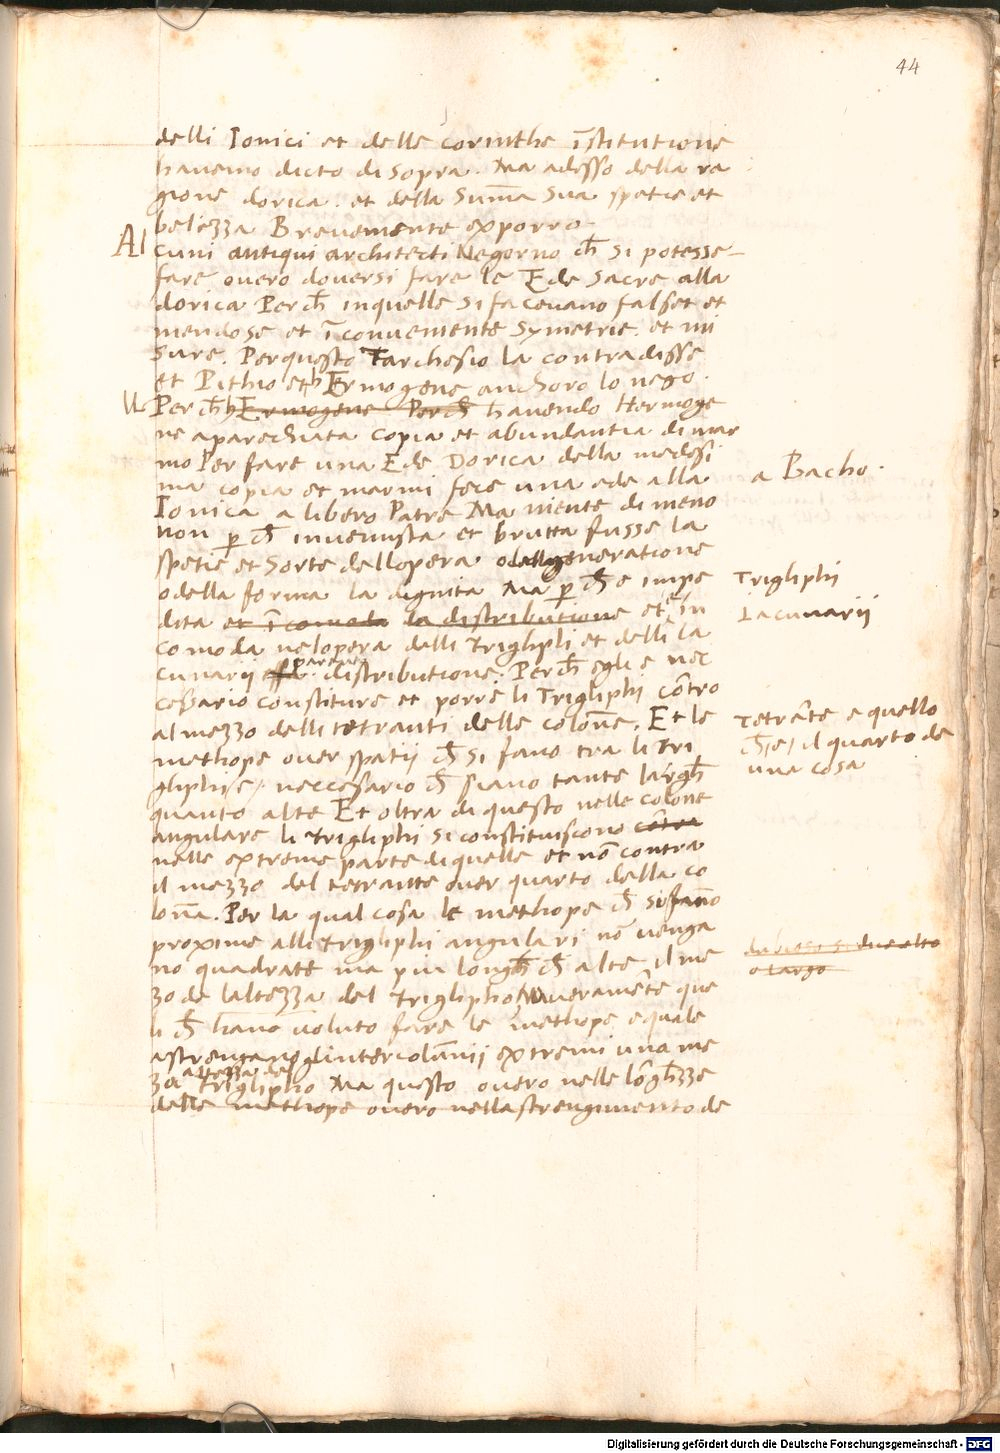 44
delli Ionici et delle corinthe īstitutione
havemo dicto di sopra. Ma adesso della ra
gione dorica. et della Sum̄a sua spetie et
belezza Brevemente exporro
Al
cuni antiqui architecti Negorno ch̄ si potesse
fare overo doversi fare le Ede Sacre alla
dorica Perch̄ in quelle si facevano false et et
mendose et īconveniente Symetrie. et mi
sure. Per questo Tarchesio la contradisse
et Pithio et Ermogene anchoro lo nego.
Perch̄ Ermogene Perch̄ havendo Hermoge
ne aparechiata copia et abundantia di mar
mo Per fare una Ede Dorica della medesi
ma copia et marmi fece una ede alla
a Bacho.
Ionica a libero Patre Ma niente di meno
non p ch̄ invenusta et brutta fusse la
spetie et Sorte dell opera o della generatione
o della forma la dignita Ma p ch̄ e impe
Trigliphi
dita et īcomoda la distributione et in
Lacunarii
comoda nel opera delli trigliphi et delli la
cunarii distributione. Perch̄ egli e nec
cessario constituire et porre li Trigliphi cōtro
al mezzo delli tetranti delle colon̄e. Et le
Tetrāte e quello
methope over spatii ch̄ si fano tra li tri
ch̄ e il quarto de
una cosa
gliphi e neccessario ch̄ siano tante largh̄
quanto alte Et oltra di questo nelle colone
angulare li trigliphi si constituiscono cōtra
nelle extreme parte di quelle et nō contra
il mezzo del tetrante over quarto della co
lon̄a. Per la qual cosa le methope ch̄ si fan̄o
proxime alli trigliphi angulari nō venga
no quadrate ma piu longh̄ ch̄ alte il me
o largo
zo de laltezza del triglipho Ma veramēte que
li ch̄ hano voluto fare le methope equale
astrengano gl intercolum̄ii extremi una me
za altezza del triglipho Ma questo overo nelle lōgh̄zze
delle methope overo nella strengimento de
Digitalisierung gefördert durch die Deutsche Forschungsgemeinschaft - DFG